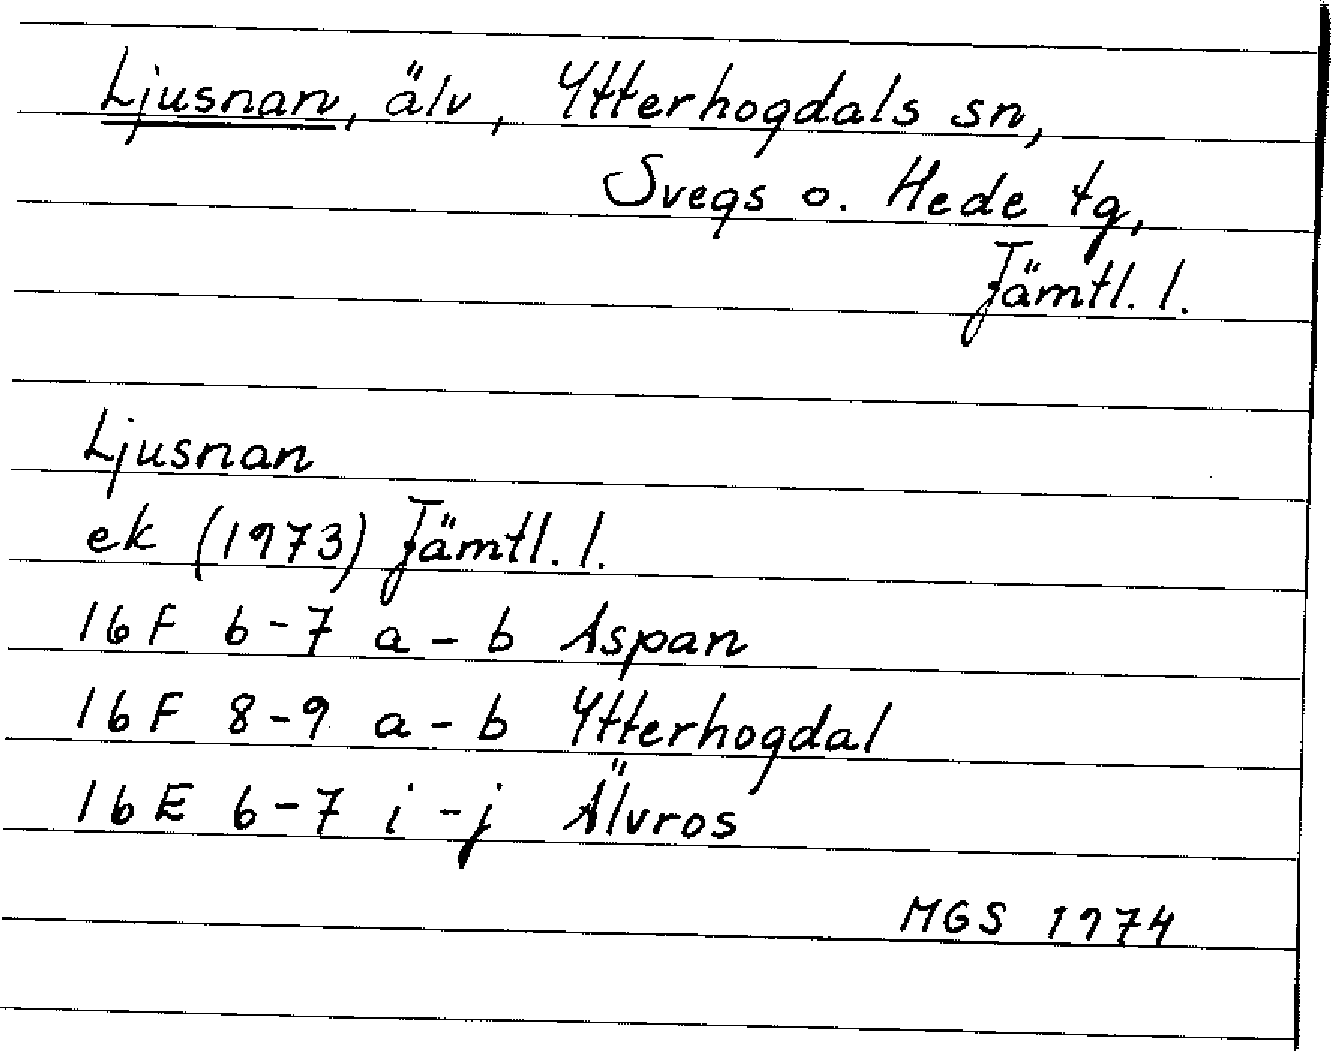 Ljusnan, älv, Ytterhogdals sn,
Svegs o. Hede tg,
Jämtl. l.
Ljusnan
ek (1973) Jämtl. l.
16F 6-7 a-b Aspan
16F 8-9 a-b Ytterhogdal
16E 6-7 i-j Älvros
MGS 1974